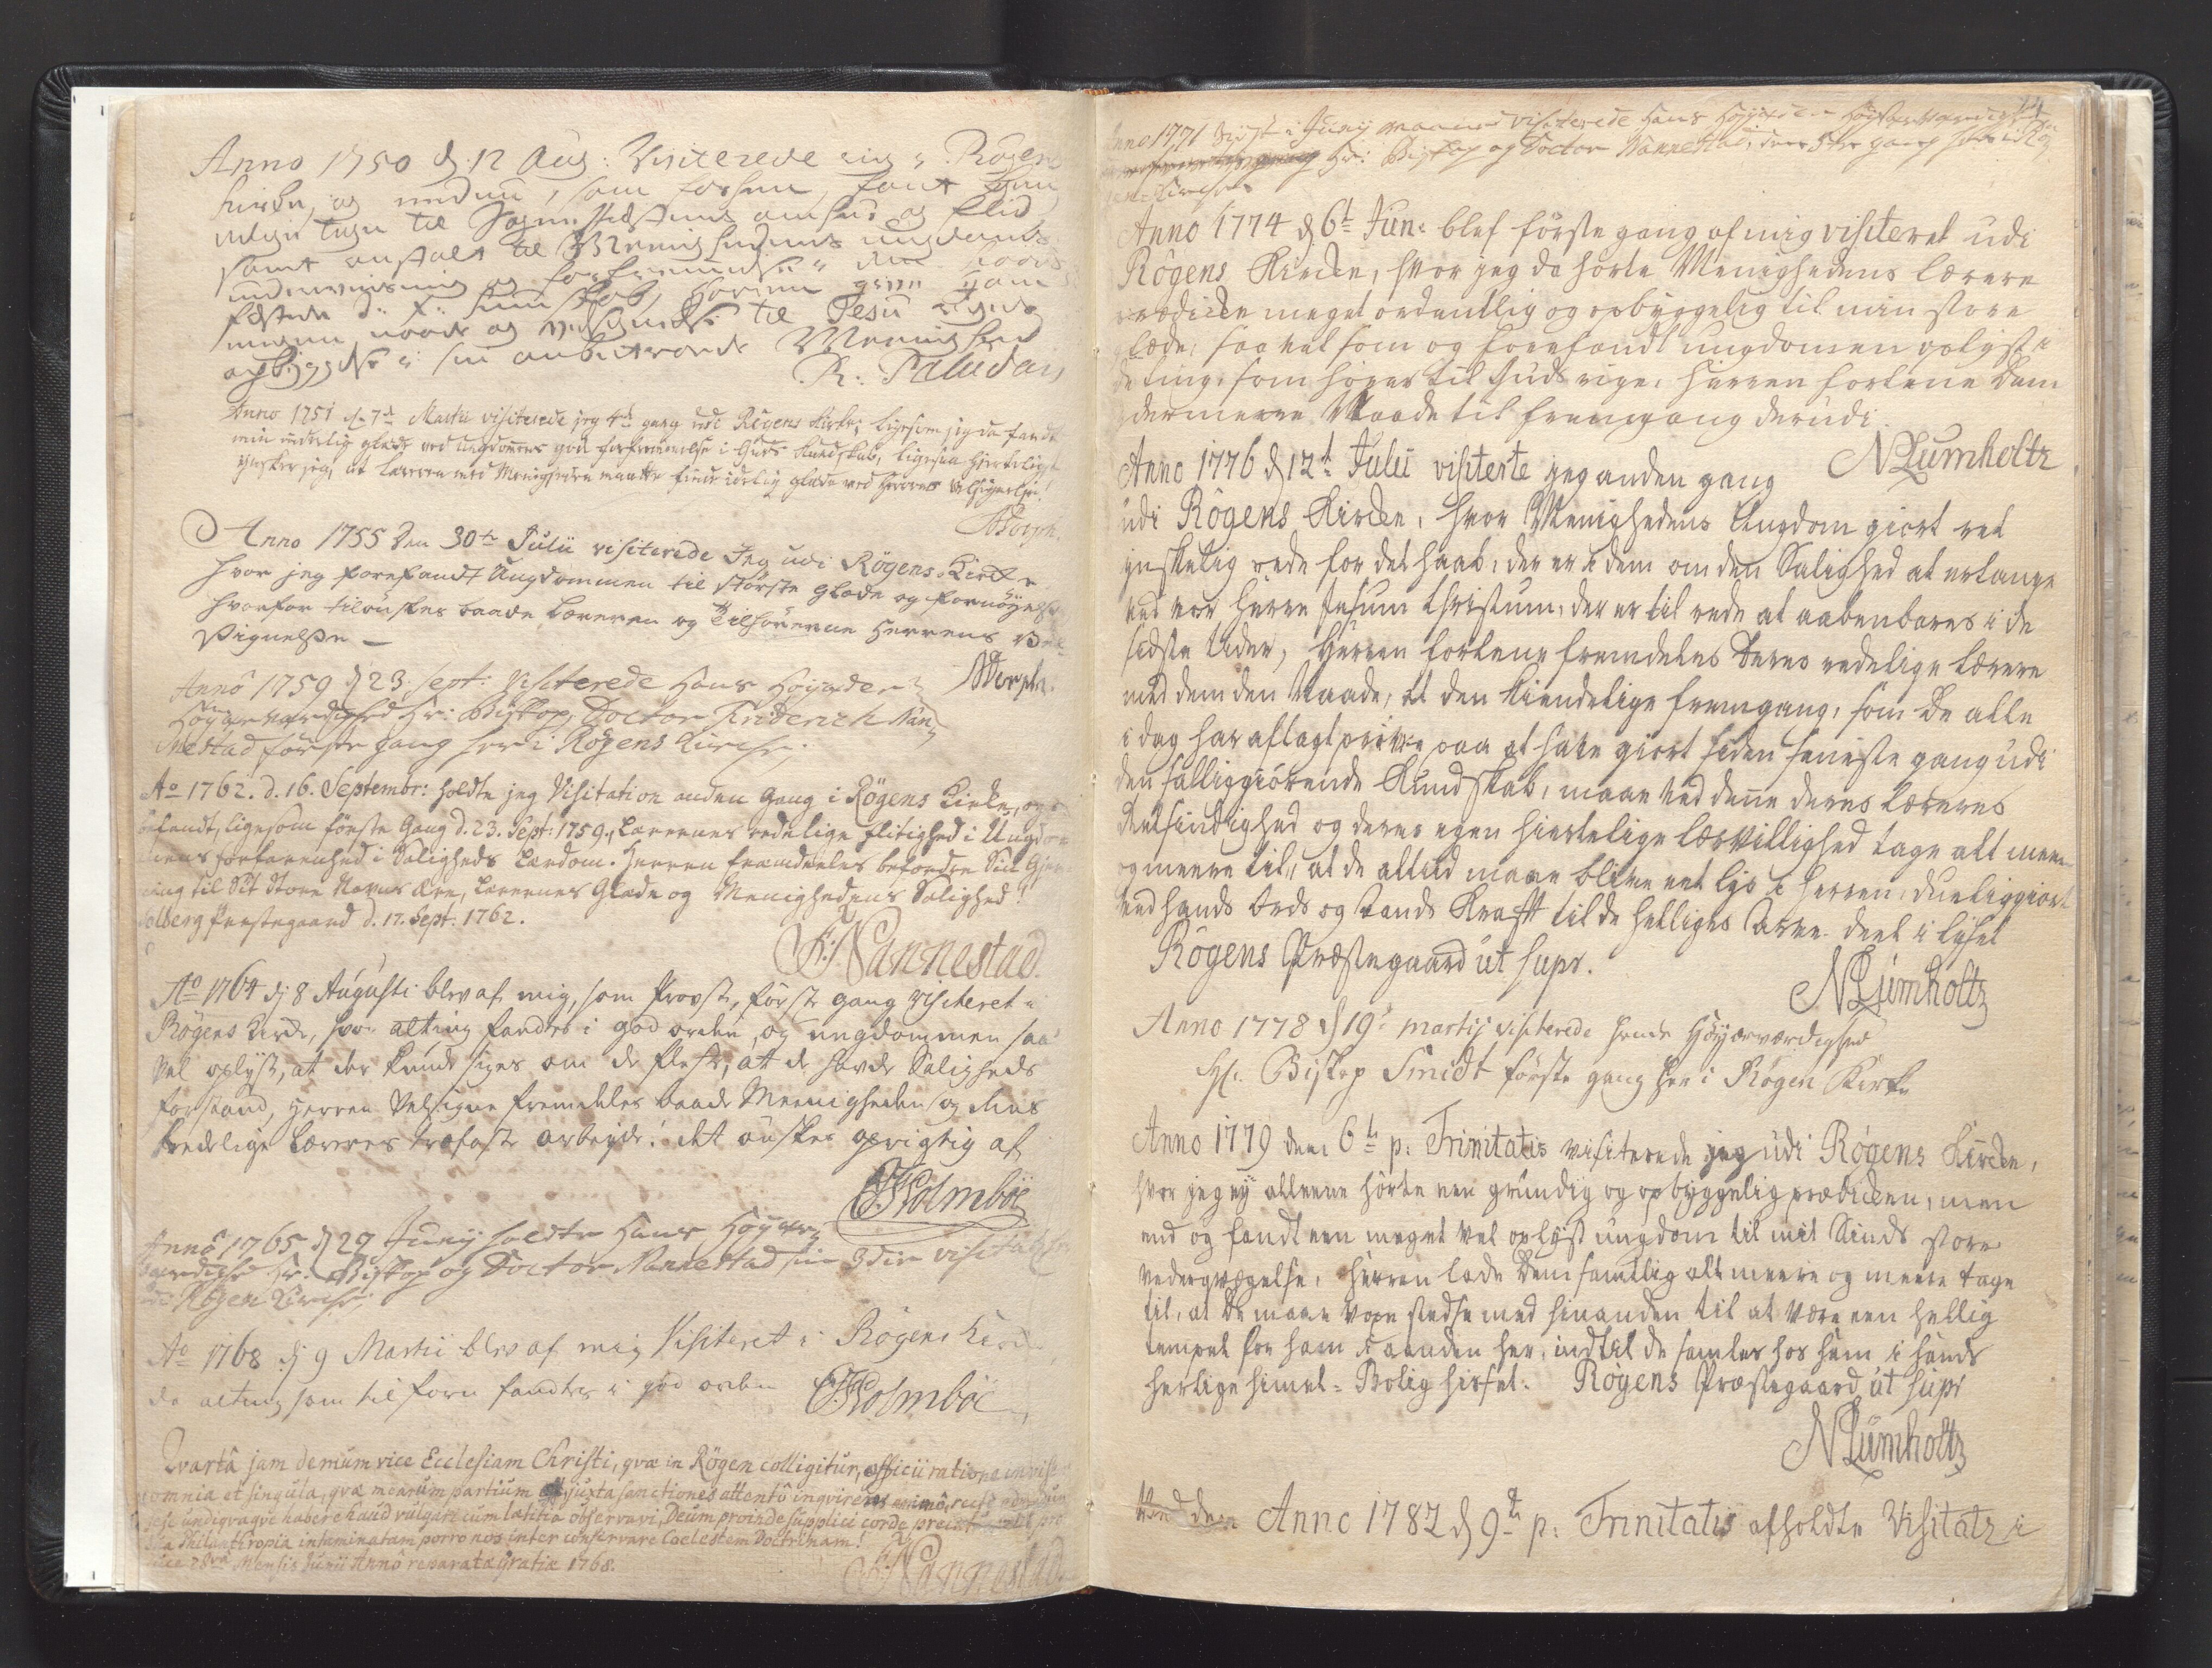 Anno 1750 d. 12 Aug: Visiterede ieg i Røgens
Kirke, og
til Sognepræstens omhue og flid
samt anstalt til Menighedens ungdoms
underviisning og
Kundskab, Herren give
naade og velsignelse til Jesu
opbyggelse i sin anbetroede Menighed
R: Paludan
Anno 1751 d. 7de Martii visiterede jeg 4de gang udi Røgens Kirke; ligesom jeg da fandt
min inderlig glæde ved ungdommens god forfremmelse i Guds kundskab, ligesaa hiertelig
ynsker jeg, at Læreren med Menigheden maatte finde idelig glæde ved Herrens velsignelse!
Anno 1755 den 30te Julii visiterede Jeg udi Røgens Kirke
hvor jeg forefandt Ungdommen til største glæde og fornøyelse
hvorfor tilønskes baade Læreren og Tilhørerne Herrens Vel-
signelse –
Anno 1759 d 23. sept: visiterede Hans Høyædle
Høyærværdighed Hr: Biskop, Doctor Friderich Nan-
nestad første gang her i Røgens Kirche;
Ao 1762. d. 16. Septembr: holdte jeg Visitation anden Gang i Røgens Kirke, og
befandt, ligesom første Gang d. 23. Sept: 1759., Lærernes redelige flitighed i Ungdom-
mens forfarenhed i Saligheds Lærdom. Herren fremdeeles befordre Sin Gjer-
ning til Sit Store Navns Ære, Lærernes Glæde og Menighedens Salighed!
Præstegaard d. 17. Sept. 1762.
F: Nannestad
Ao 1764 d 8 Augusti blev af mig, som Provst, første gang visiteret i
Røgens Kirke, hvor alting fandtes i god orden, og ungdommen saa
vel oplyst, at der kunde siges om de fleste, at de havde Saligheds
forstand, Herren velsigne fremdeles baade Menigheden og dens
redelige Læreres troefaste arbeyde! det ønsker oprigtig af
J Holmboe
Anno 1765 d 29 Junij holdte Hans Høyær-
værdighed Hr: Biskop og Doctor Nannestad sin 3die visitatz
i Røgen Kirche;
Ao 1768 d 9 Martii blev af mig Visiteret i Røgens Kirke
da alting som tilforn fandtes i god orden J Holmboe
Qvartâ jam demum vice Ecclesiam Christi, qvæ in Røgen colligitur, officii ratione invisi
omnia et singula, qvæ mearum partium juxta sanctiones attentô inqvirens animô, recte
sese undiqvaqve habere haud vulgari cum lætitia observavi, Deum proinde supplici corde
Philanthropia intaminatam porro nos inter conservare Coelestem Doctrinam!
28va Mensis Junii Annô reparatæ Gratiæ 1768.
F: Nannestad
Anno 1771 i Junij maaned visiterede Hans Høyædle Høyærværdighed
Hr: Biskop og Doctor Nannestad, den 5te gang her i Røg-
en Kirche
Anno 1774 d 6te Jun: blef første gang af mig visiteret udi
Røgens Kircke, hvor jeg da hørte Menighedens Lærere
prædicke meget ordentlig og opbyggelig til min store
glæde, saa vel som og forefandt ungdomen oplyst i
de ting, som hører til Guds rige, Herren forlene dem
dermeere Naade til fremgang derudi
NLumholtz
Anno 1776 d 12te Julii visiterte jeg anden gang
udi Røgens Kircke, hvor Menighedens Ungdom giort ret
ynskelig rede for det haab, der er i dem om den Salighed at erlange
ved vor Herre Jesum Christum, der er til rede at aabenbares i de
sidste tider, Herren forlene fremdeles deres redelige Lærere
med dem den Naade, at den kiendelige fremgang, som de alle
i dag har aflagt prøve paa at have giort siden seneste gang udi
den saliggiørende Kundskab, maae ved denne deres Læreres
og deres egen hiertelige lærvillighed tage alt meere
og meere til, at de altid maae blive eet lys i Herren, dueliggiort
ved hands Ords og Aands Krafft til de helliges Arve deel i lyset
Røgens Præstegaard ut supr.
NLumholtz
Anno 1778 d 19de martij visiterede hands Høyærværdighed
Hr. Biskop Smidt første gang her i Røgen Kirke
Anno 1779 den 6te p: Trinitatis visiterede jeg udi Røgens Kircke,
hvor jeg ey alleene hørte een grundig og opbyggelig prædicken, men
end og fandt een meget vel oplyst ungdom til mit Sinds store
vederqvægelse, Herren lade dem samtlig alt meere og meere tage
til, at de maae voxe stedse med hinanden til at være een hellig
tempel for ham i aanden her, indtil de samles hos ham i hands
herlige himel-Bolig hisset. Røgens Præstegaard ut supr
NLumholtz
Anno 1782 d 9te p: Trinitatis afholdte Visitatz i